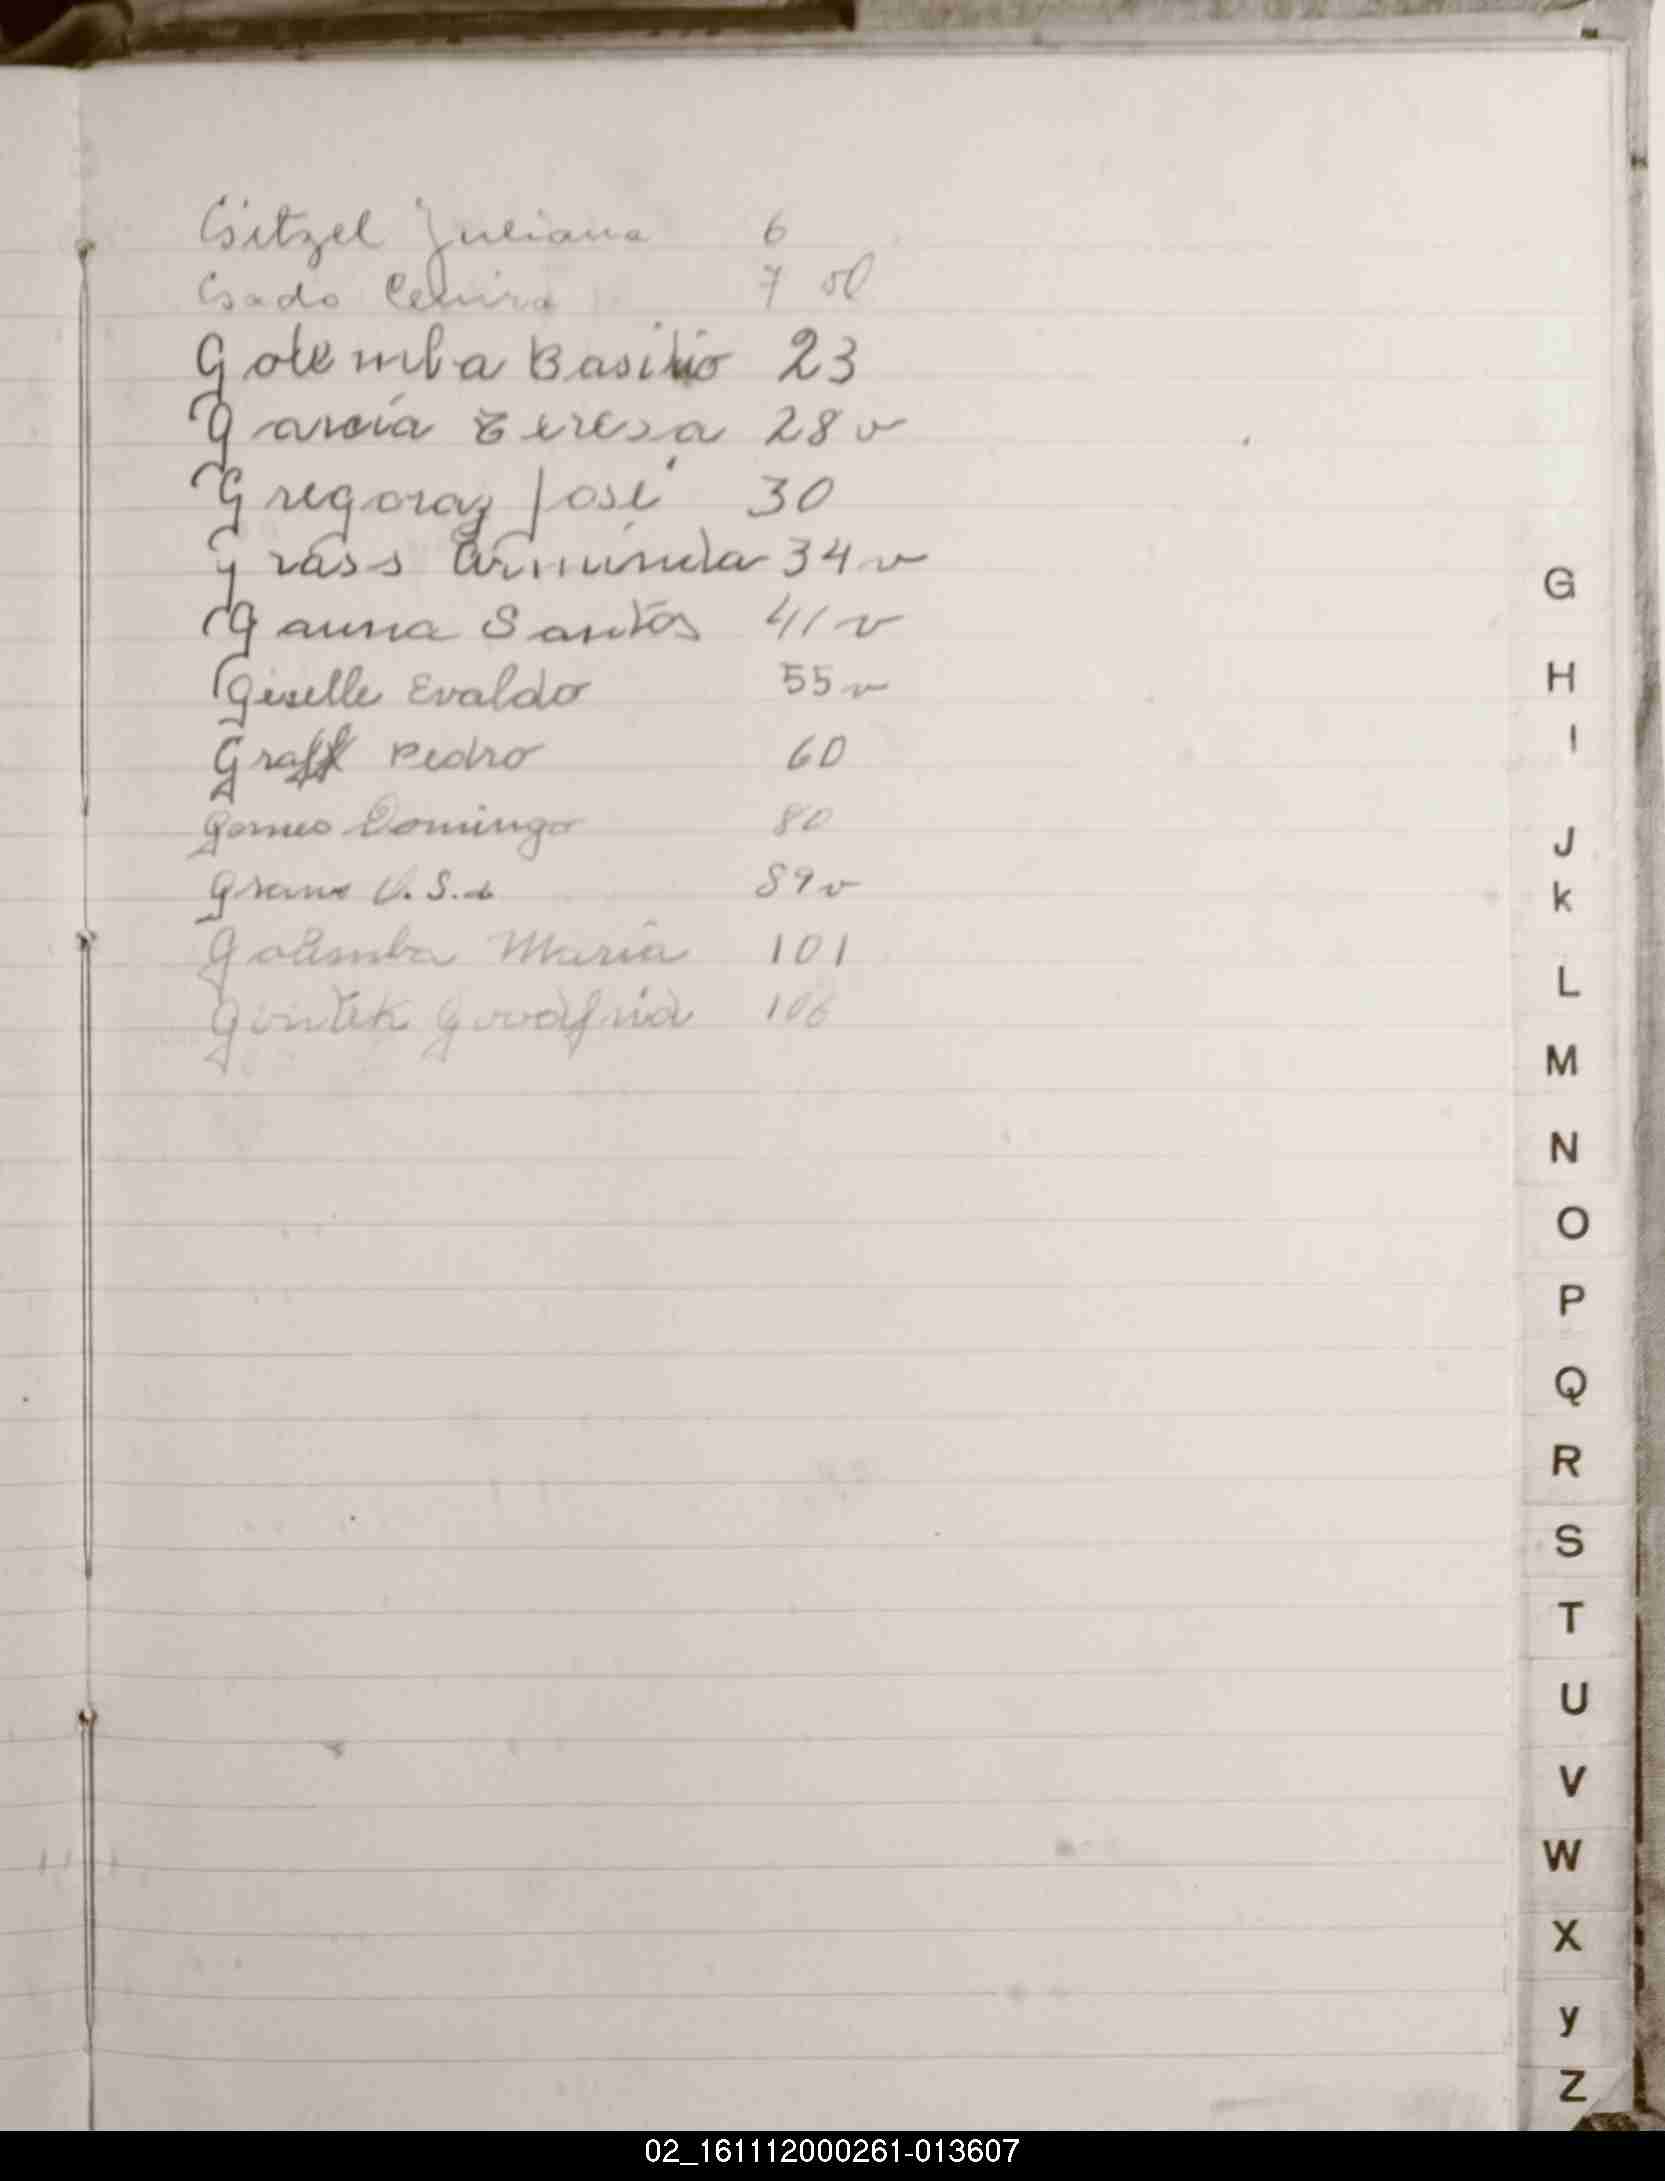 Gitzel Juliana 6
Gado 7
Golemba Basilio 23
Garcia Teresa 28 v
Gregoraz José 30
Grass Arminda 34 v
Gauna Santos 41 v
Giselle Evaldo 55 v
Graff Pedro 60
Gomes Domingo 80
89 v
Golemba Maria 101
Gintek 106
G
H
I
J
K
L
M
N
O
P
Q
R
S
T
U
V
W
X
y
Z
02_161112000261-013607